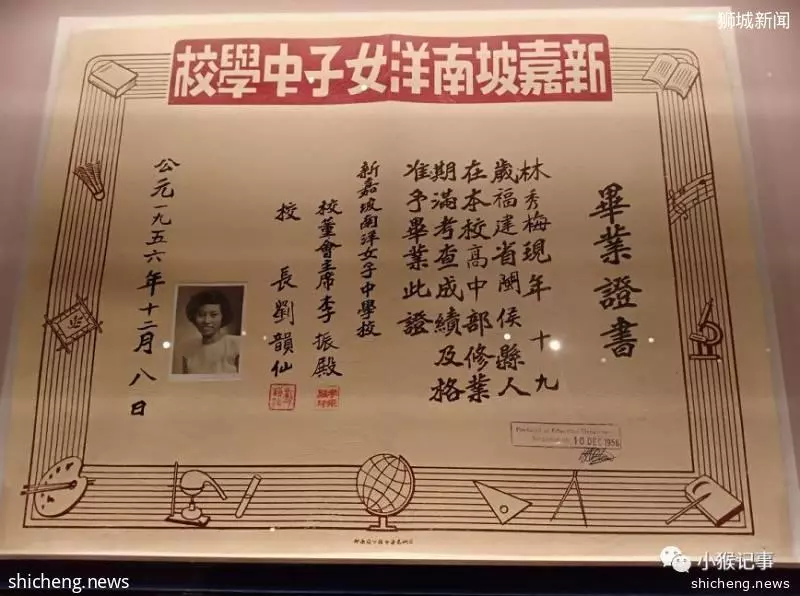 狮城新闻
新嘉坡南洋女子中學校
畢業證書
林秀梅現年十九
歲福建省閩侯縣人
在本校高中部修業
期滿考查成績及格
准予畢業此證
新嘉坡南洋女子中學校
校董會主席李振殿
校長劉韻仙
公元一九五六年十二月八日
Produced at Education
10 DEC 1956
小猴记事
shicheng.news
shicheng.news